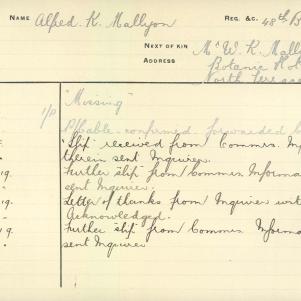 NAME Alfred K. Mallyon REG. &C. 48th B
NEXT OF KIN Mr W. K. Mall
ADDRESS Botanic Hot
North Terrace
"Missing"
1/P Probable - confirmed. forwarded
"Slip" received from Commrs. In
therein sent Inquirer.
19. Further slip from Commrs Informa
sent Inquirer.
19. Letter of thanks from Inquirer
Acknowledged.
19. Further slip from Commrs Informa
sent Inquirer